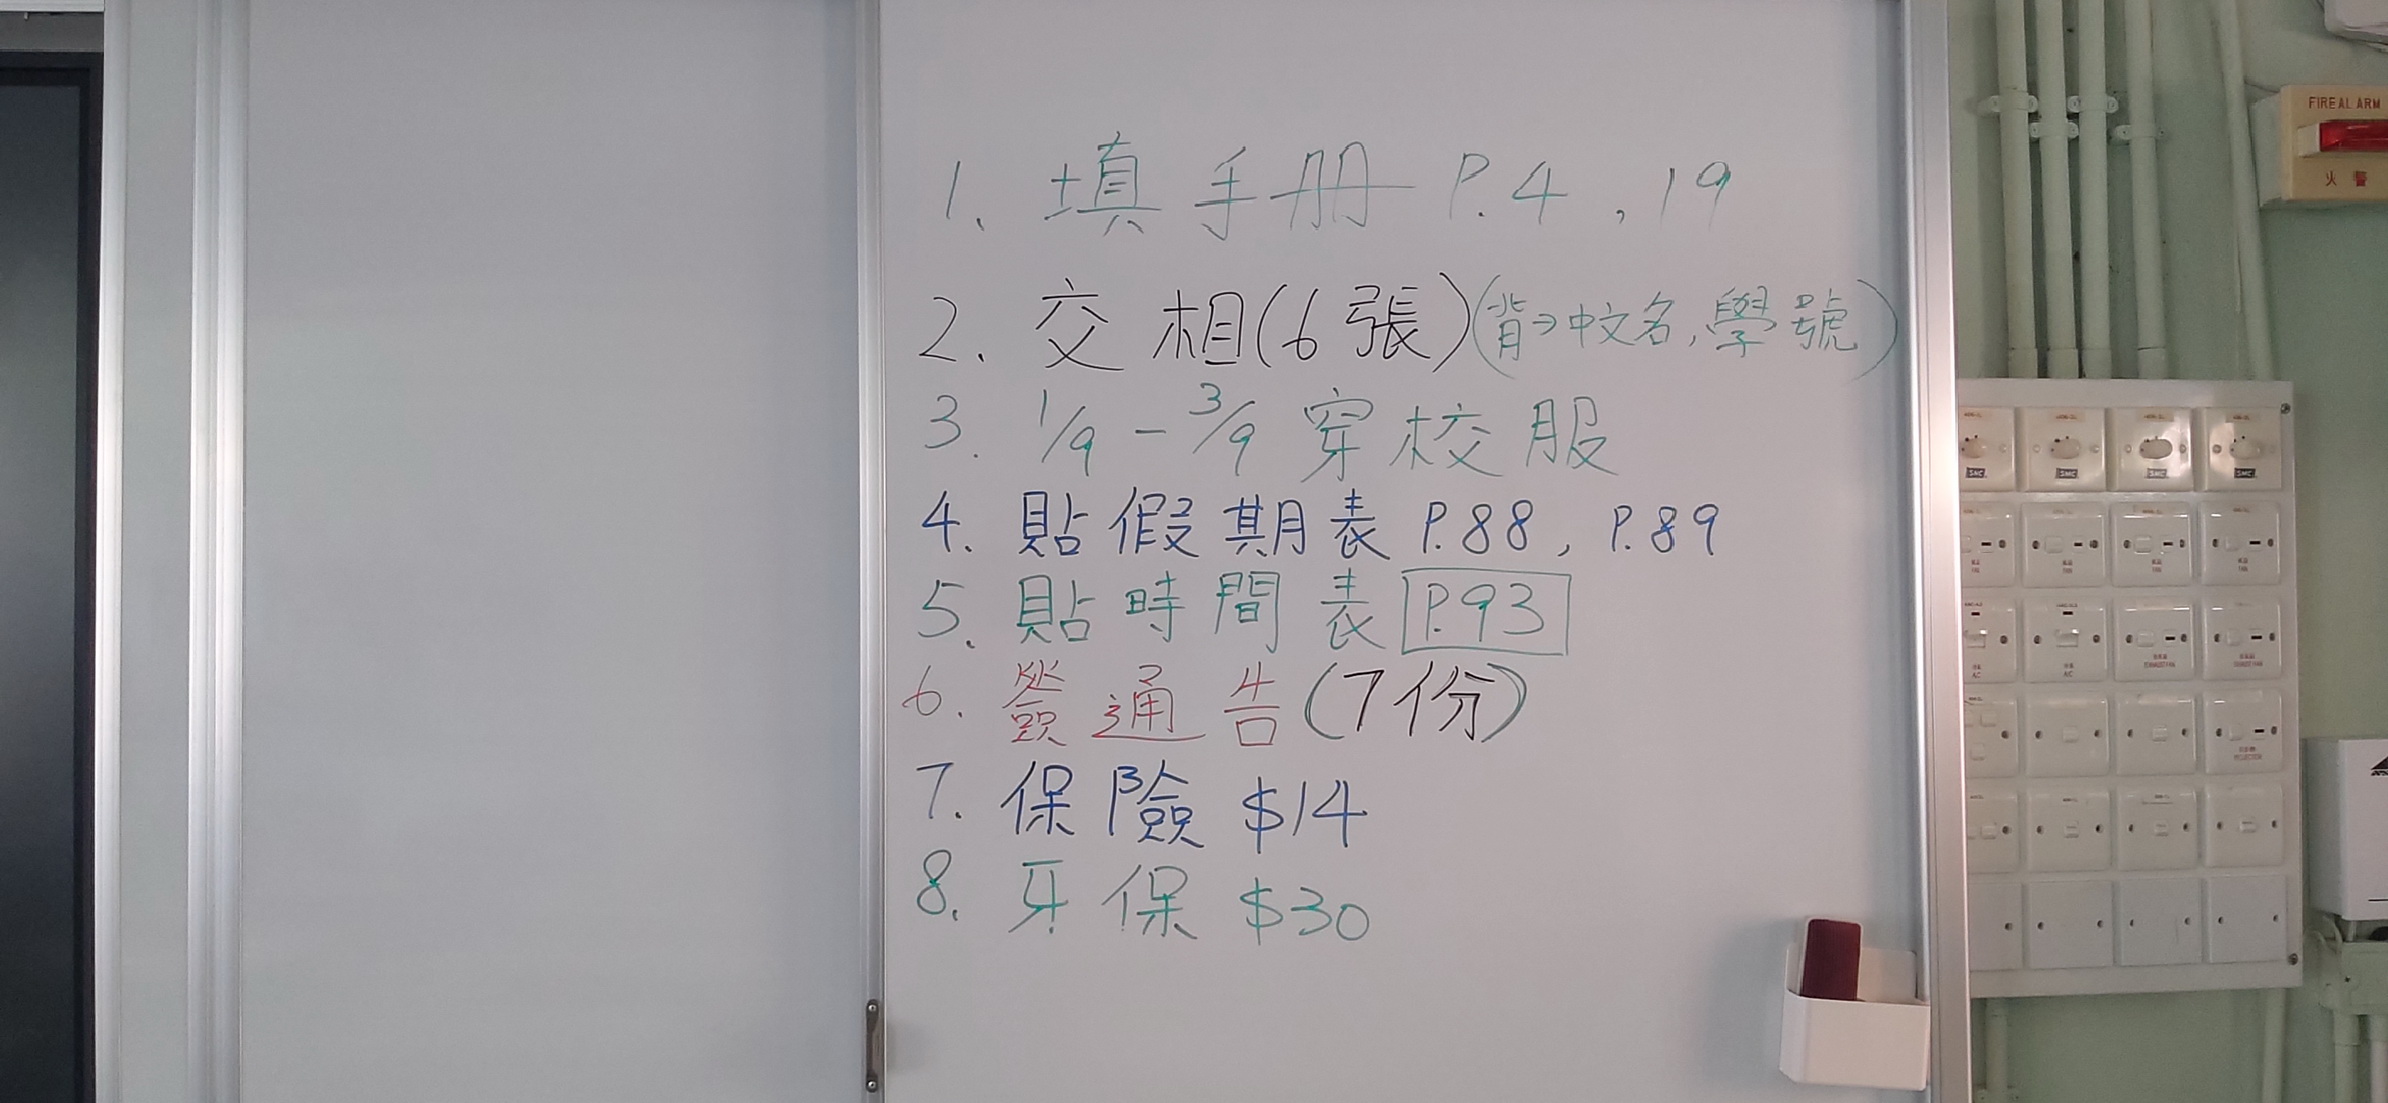 1. 填手册 P.4, 19
2. 交相(6張)(背→中文名,學號)
3. 1/9 - 3/9 穿校服
4. 貼假期表 P.88, P.89
5. 貼時間表 P.93
6. 簽通告(7份)
7. 保險 $14
8. 牙保 $30
FIRE ALARM
火警